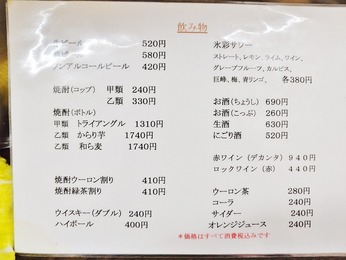 飲み物
ビール 520円
580円
ノンアルコールビール 420円
焼酎(コップ) 甲類 240円
乙類 330円
焼酎(ボトル)
甲類 トライアングル 1310円
乙類 からり芋 1740円
乙類 和ら麦 1740円
焼酎ウーロン割り 410円
焼酎緑茶割り 410円
ウイスキー(ダブル) 240円
ハイボール 400円
氷彩サワー
ストレート、レモン、ライム、ワイン、
グレープフルーツ、カルピス、
巨峰、梅、青リンゴ、 各380円
お酒(ちょうし) 690円
お酒(こっぷ) 260円
生酒 630円
にごり酒 520円
赤ワイン(デカンタ) 940円
ロックワイン(赤) 440円
ウーロン茶 280円
コーラ 240円
サイダー 240円
オレンジジュース 240円
*価格はすべて消費税込みです